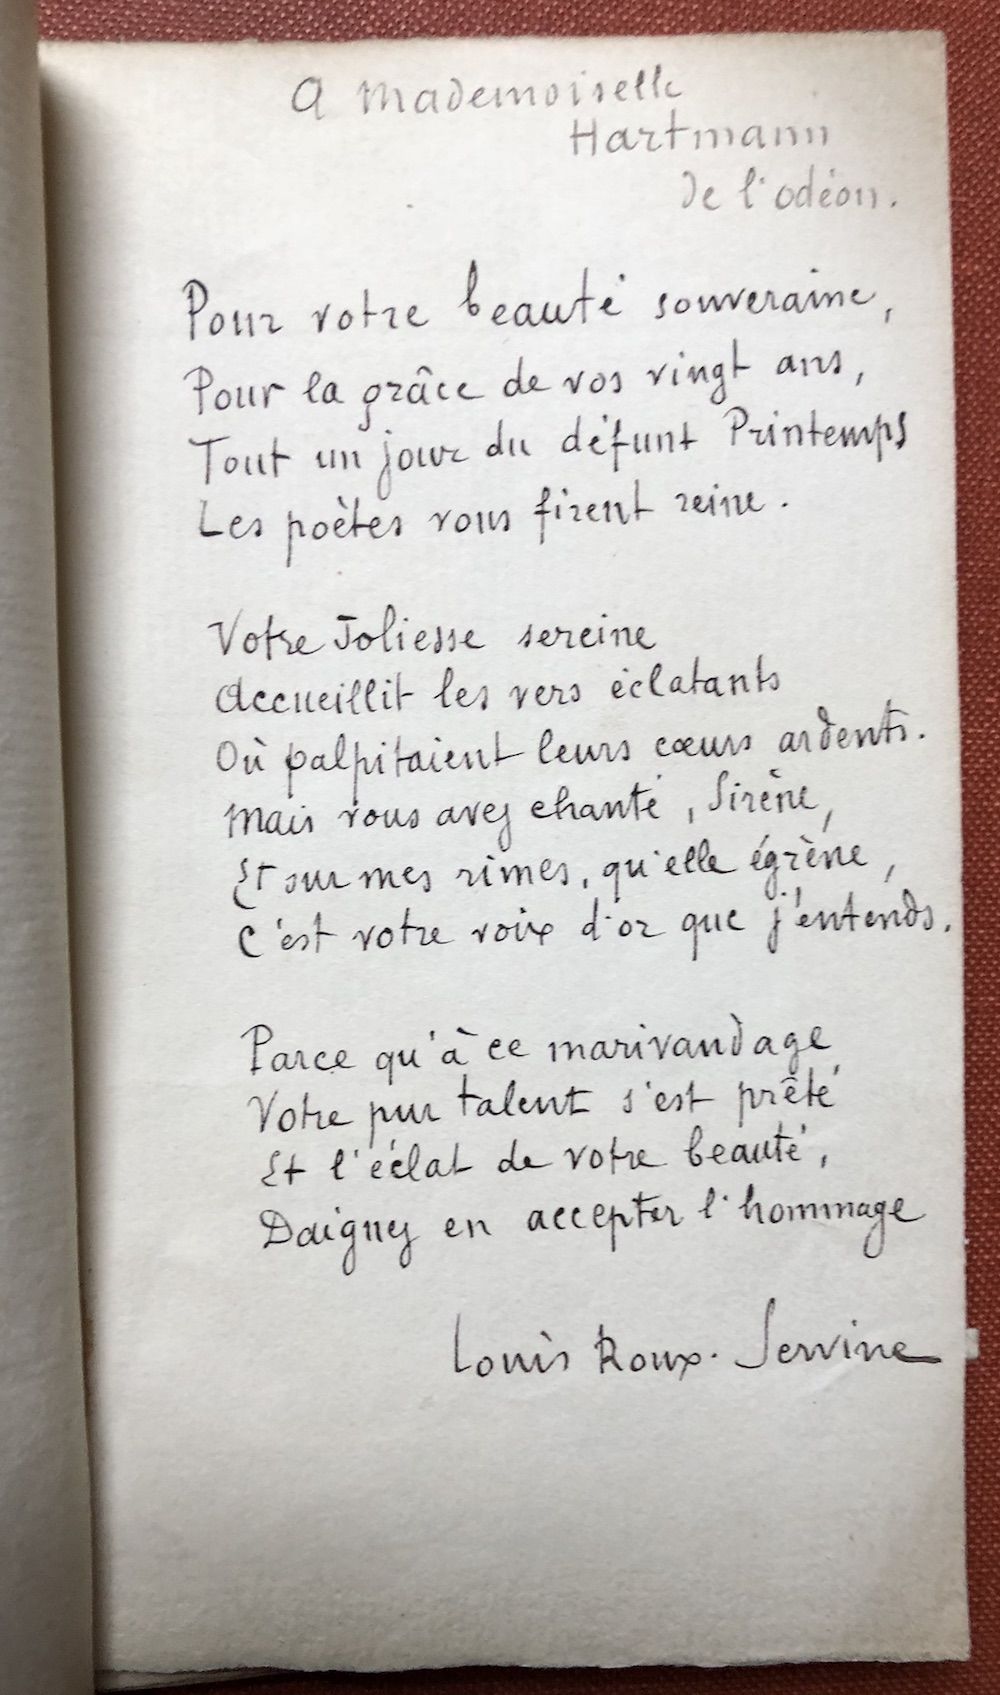 A Mademoiselle
Hartmann
de l'odéon.
Pour votre beauté souveraine,
Pour la grâce de vos vingt ans,
Tout un jour du défunt Printemps
Les poètes vous firent reine.
Votre Joliesse sereine
Accueillit les vers éclatants
Où palpitaient leurs cœurs ardents.
Mais vous avez chanté, Sirène,
Et sur mes rimes, qu'elle égrène,
C'est votre voix d'or que j'entends.
Parce qu'à ce marivaudage,
Votre pur talent s'est prêté
Et l'éclat de votre beauté,
Daignez en accepter l'hommage
Louis Roux-Servine